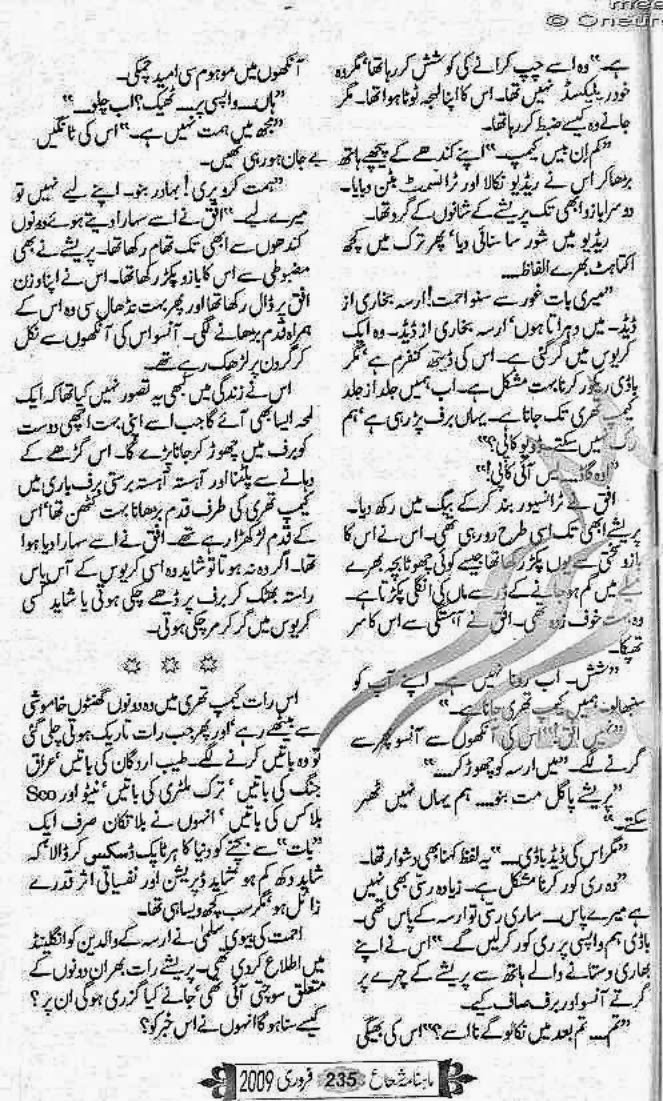 ہے۔“ وہ اسے چپ کرانے کی کوشش کر رہا تھا‘ مگر وہ
خود ریلیکسڈ نہیں تھا۔ اس کا اپنا لہجہ ٹوٹا ہوا تھا۔ مگر
جانے وہ کیسے ضبط کر رہا تھا۔
”کم ان بیس کیمپ۔“ اپنے کندھے کے پیچھے ہاتھ
بڑھا کر اس نے ریڈیو نکالا اور ٹرانسمٹ بٹن دبایا۔
دوسرا بازو ابھی تک پریشے کے شانوں کے گرد تھا۔
ریڈیو میں شور سا سنائی دیا‘ پھر ترک میں کچھ
اکتاہٹ بھرے الفاظ۔۔۔۔
”میری بات غور سے سنو احمت! ارسہ بخاری از
ڈیڈ۔ میں دہراتا ہوں‘ ارسہ بخاری از ڈیڈ۔ وہ ایک
کریوس میں گر گئی ہے۔ اس کی ڈیتھ کنفرم ہے‘ مگر
باڈی ریکور کرنا بہت مشکل ہے۔ اب ہمیں جلد از جلد
کیمپ تھری تک جانا ہے۔ یہاں برف پڑ رہی ہے‘ ہم
رک نہیں سکتے۔ ڈو یو کاپی؟“
”اوہ گاڈ۔۔۔ یس آئی کاپی!“
افق نے ٹرانسیور بند کر کے بیگ میں رکھ دیا۔
پریشے ابھی تک اسی طرح رو رہی تھی۔ اس نے اس کا
بازو سختی سے یوں پکڑ رکھا تھا جیسے کوئی چھوٹا بچہ بھرے
میلے میں گم ہو جانے کے ڈر سے ماں کی انگلی پکڑتا ہے۔
وہ بہت خوف زدہ تھی۔ افق نے آہستگی سے اس کا سر
تھپکا۔
”شش۔ اب رونا نہیں ہے۔ اپنے آپ کو
سنبھالو۔ ہمیں کیمپ تھری جانا ہے۔“
”نہیں افق!“ اس کی آنکھوں سے آنسو پھر سے
گرنے لگے۔ ”میں ارسہ کو چھوڑ کر۔۔۔۔“
”پریشے پاگل مت بنو۔۔۔۔ ہم یہاں نہیں ٹھہر
سکتے۔“
”مگر اس کی ڈیڈ باڈی۔۔۔۔“ یہ لفظ کہنا بھی دشوار تھا۔
”وہ ری کور کرنا مشکل ہے۔ زیادہ رسی بھی نہیں
ہے میرے پاس۔۔۔ ساری رسی تو ارسہ کے پاس تھی۔
باڈی ہم واپسی پر ری کور کر لیں گے۔“ اس نے اپنے
بھاری دستانے والے ہاتھ سے پریشے کے چہرے پر
گرتے آنسو اور برف صاف کیے۔
”تم۔۔۔۔ تم بعد میں نکالو گے نا اسے؟“ اس کی بھیگی
آنکھوں میں موہوم سی امید چمکی۔
”ہاں۔۔۔ واپسی پر۔۔۔ ٹھیک؟ اب چلو۔۔۔۔“
”مجھ میں ہمت نہیں ہے۔“ اس کی ٹانگیں
بے جان ہو رہی تھیں۔
”ہمت کرو پری! بہادر بنو۔ اپنے لیے نہیں تو
میرے لیے۔“ افق نے اسے سہارا دیتے ہوئے دونوں
کندھوں سے ابھی تک تھام رکھا تھا۔ پریشے نے بھی
مضبوطی سے اس کا بازو پکڑ رکھا تھا۔ اس نے اپنا وزن
افق پر ڈال رکھا تھا اور پھر بہت نڈھال سی وہ اس کے
ہمراہ قدم بڑھانے لگی۔ آنسو اس کی آنکھوں سے نکل
کر گردن پر لڑھک رہے تھے۔
اس نے زندگی میں کبھی یہ تصور نہیں کیا تھا کہ ایک
لمحہ ایسا بھی آئے گا جب اسے اپنی بہت اچھی دوست
کو برف میں چھوڑ کر جانا پڑے گا۔ اس گڑھے کے
دہانے سے پلٹنا اور آہستہ آہستہ برستی برف باری میں
کیمپ تھری کی طرف قدم بڑھانا بہت کٹھن تھا‘ اس
کے قدم لڑکھڑا رہے تھے۔ افق نے اسے سہارا دیا ہوا
تھا۔ اگر وہ نہ ہوتا تو شاید وہ اسی کریوس کے آس پاس
راستہ بھٹک کر برف پر ڈھے چکی ہوتی یا شاید کسی
کریوس میں گر کر مر چکی ہوتی۔
☆ ☆ ☆
اس رات کیمپ تھری میں وہ دونوں گھنٹوں خاموشی
سے بیٹھے رہے‘ اور پھر جب رات تاریک ہوتی چلی گئی
تو وہ باتیں کرنے لگے۔ طیب اردگان کی باتیں‘ عراق
جنگ کی باتیں‘ ترک ملٹری کی باتیں‘ نیٹو اور Seo
بلاکس کی باتیں‘ انہوں نے بلا تکان صرف ایک
”بات“ سے بچنے کو دنیا کا ہر ٹاپک ڈسکس کر ڈالا‘ کہ
شاید دکھ کم ہو‘ شاید ڈپریشن اور نفسیاتی اثر قدرے
زائل ہو‘ مگر سب کچھ ویسا ہی تھا۔
احمت کی بیوی سلمٰی نے ارسہ کے والدین کو انگلینڈ
میں اطلاع کر دی تھی۔ پریشے رات بھر ان دونوں کے
متعلق سوچتی آئی تھی‘ جانے کیا گزری ہو گی ان پر؟
کیسے سنا ہو گا انہوں نے اس خبر کو؟
ماہنامہ شعاع 235 فروری 2009